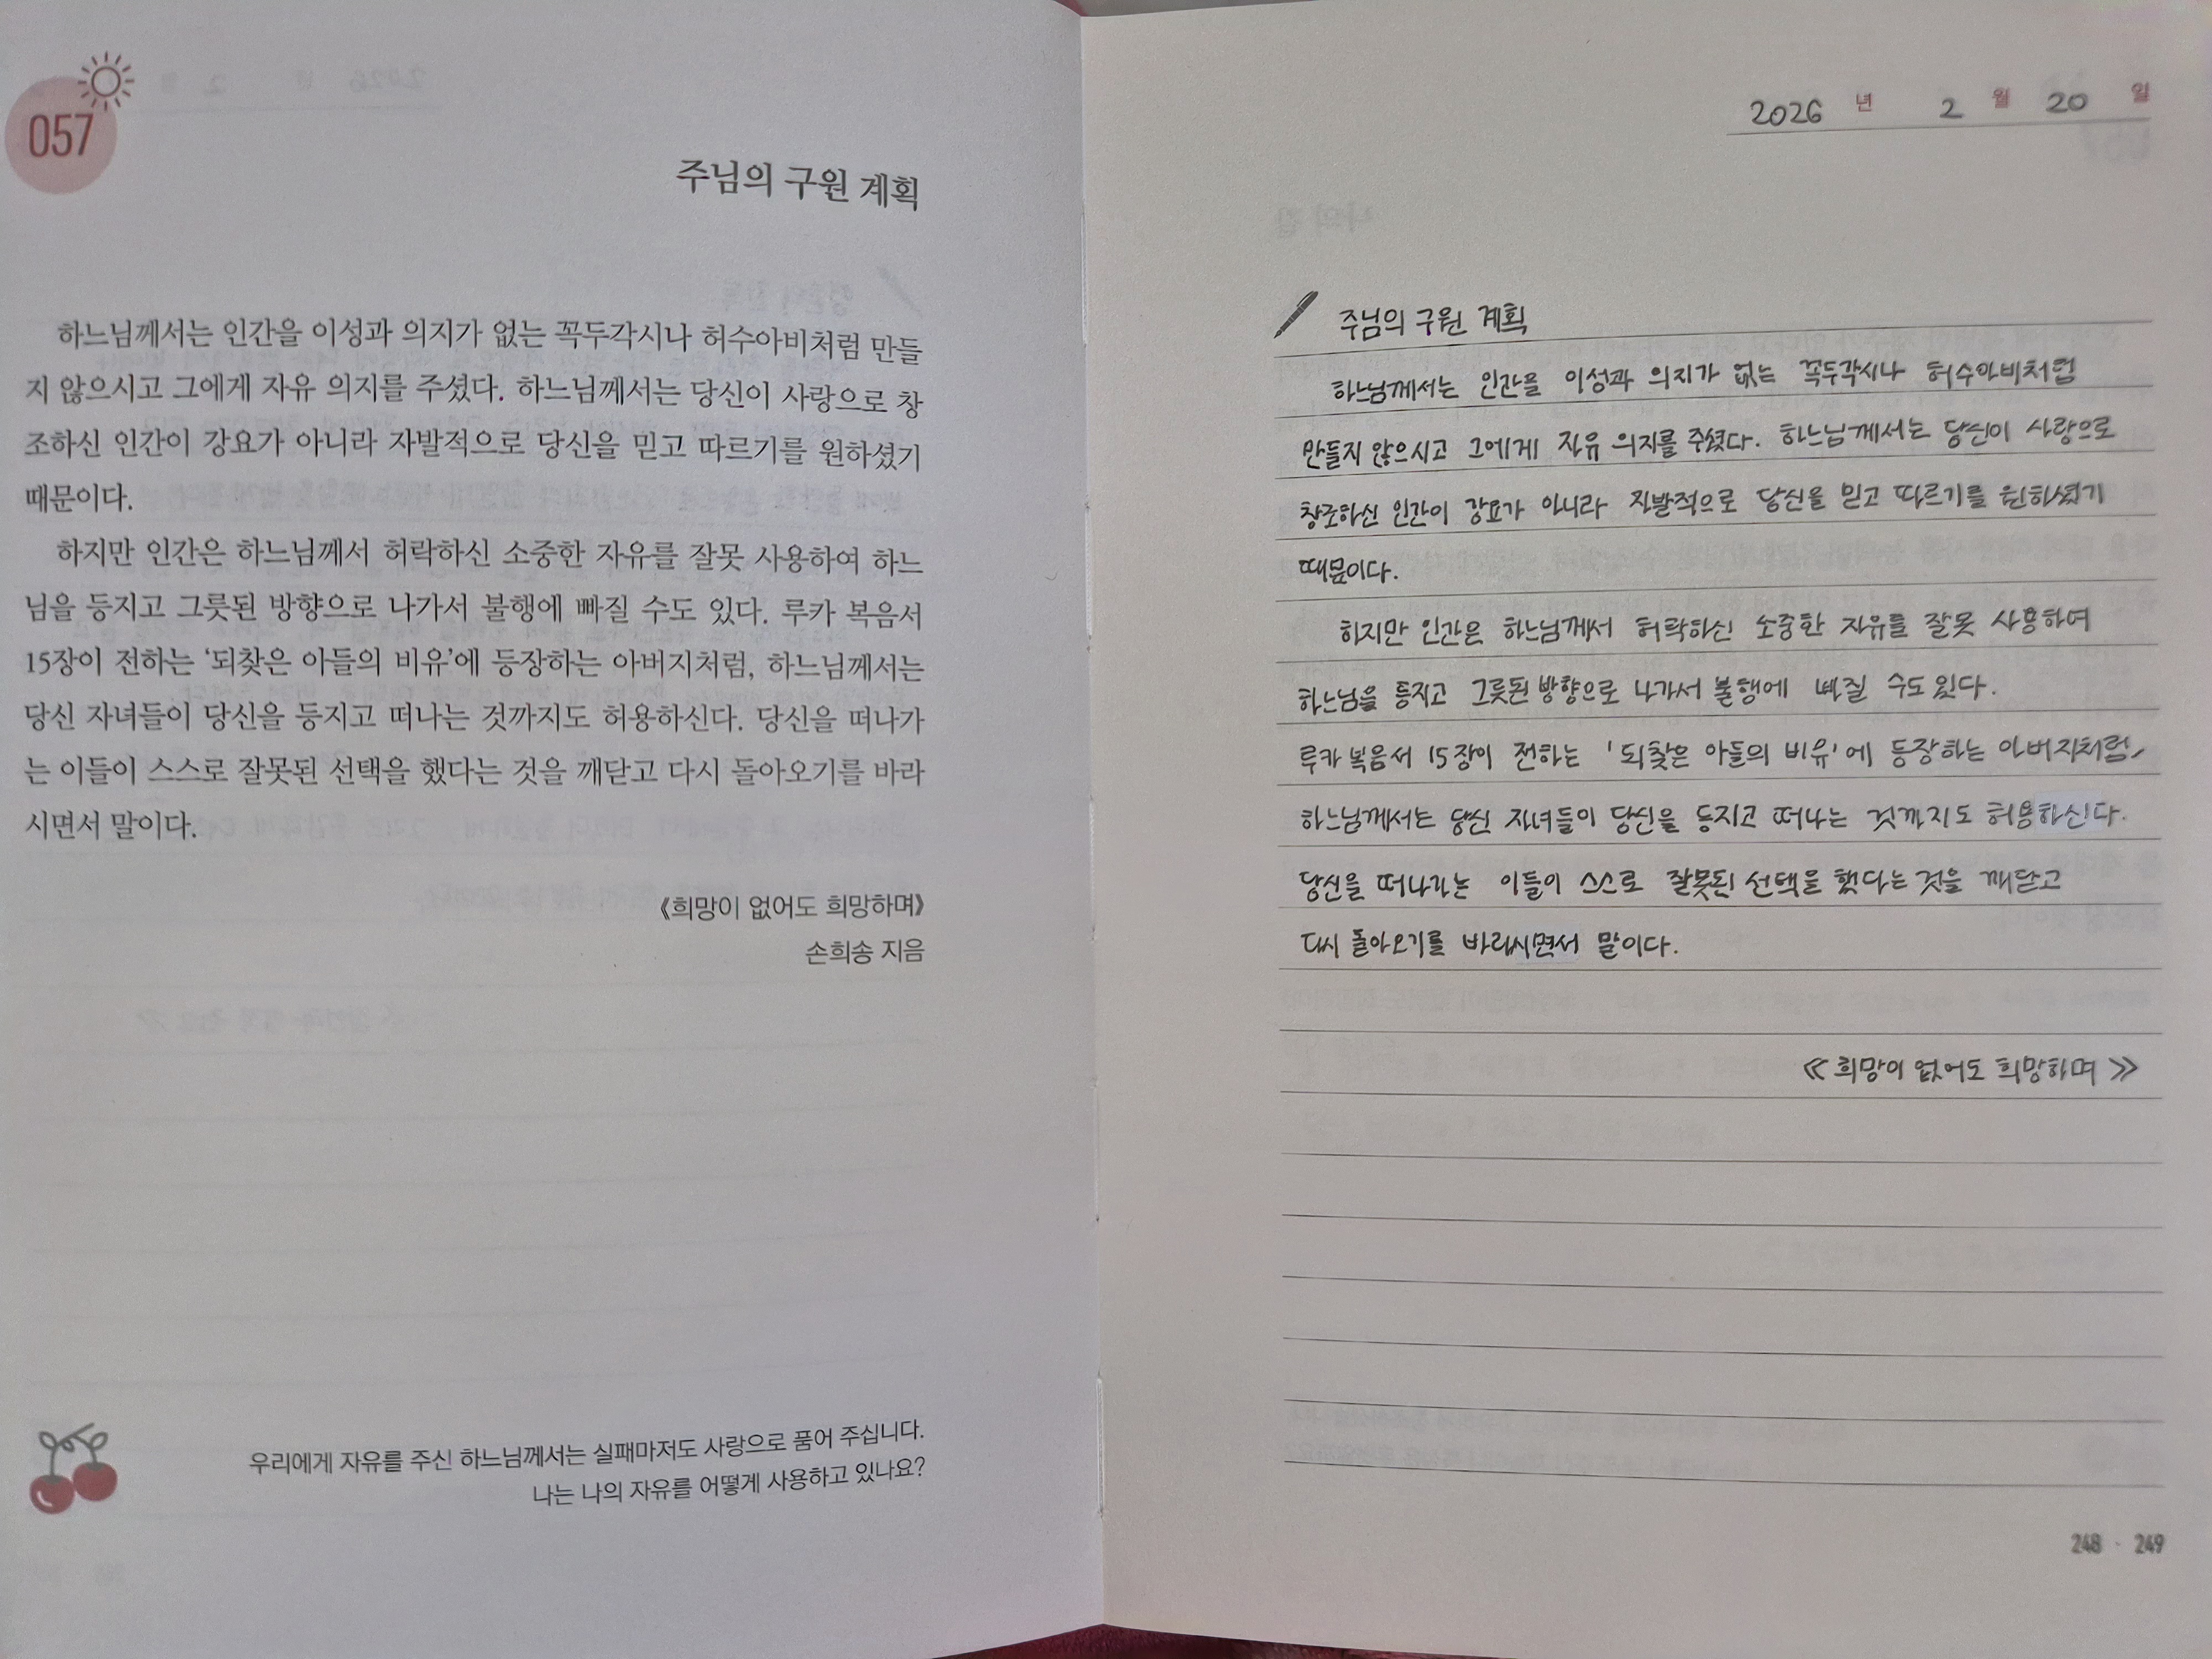 057
주님의 구원 계획
하느님께서는 인간을 이성과 의지가 없는 꼭두각시나 허수아비처럼 만들
지 않으시고 그에게 자유 의지를 주셨다. 하느님께서는 당신이 사랑으로 창
조하신 인간이 강요가 아니라 자발적으로 당신을 믿고 따르기를 원하셨기
때문이다.
하지만 인간은 하느님께서 허락하신 소중한 자유를 잘못 사용하여 하느
님을 등지고 그릇된 방향으로 나가서 불행에 빠질 수도 있다. 루카 복음서
15장이 전하는 ‘되찾은 아들의 비유’에 등장하는 아버지처럼, 하느님께서는
당신 자녀들이 당신을 등지고 떠나는 것까지도 허용하신다. 당신을 떠나가
는 이들이 스스로 잘못된 선택을 했다는 것을 깨닫고 다시 돌아오기를 바라
시면서 말이다.
《희망이 없어도 희망하며》
손희송 지음
우리에게 자유를 주신 하느님께서는 실패마저도 사랑으로 품어 주십니다.
나는 나의 자유를 어떻게 사용하고 있나요?
2026 년 2 월 20 일
주님의 구원 계획
하느님께서는 인간을 이성과 의지가 없는 꼭두각시나 허수아비처럼
만들지 않으시고 그에게 자유 의지를 주셨다. 하느님께서는 당신이 사랑으로
창조하신 인간이 강요가 아니라 자발적으로 당신을 믿고 따르기를 원하셨기
때문이다.
하지만 인간은 하느님께서 허락하신 소중한 자유를 잘못 사용하여
하느님을 등지고 그릇된 방향으로 나가서 불행에 빠질 수도 있다.
루카 복음서 15장이 전하는 '되찾은 아들의 비유'에 등장하는 아버지처럼,
하느님께서는 당신 자녀들이 당신을 등지고 떠나는 것까지도 허용하신다.
당신을 떠나가는 이들이 스스로 잘못된 선택을 했다는 것을 깨닫고
다시 돌아오기를 바라시면서 말이다.
≪희망이 없어도 희망하며≫
248 · 249